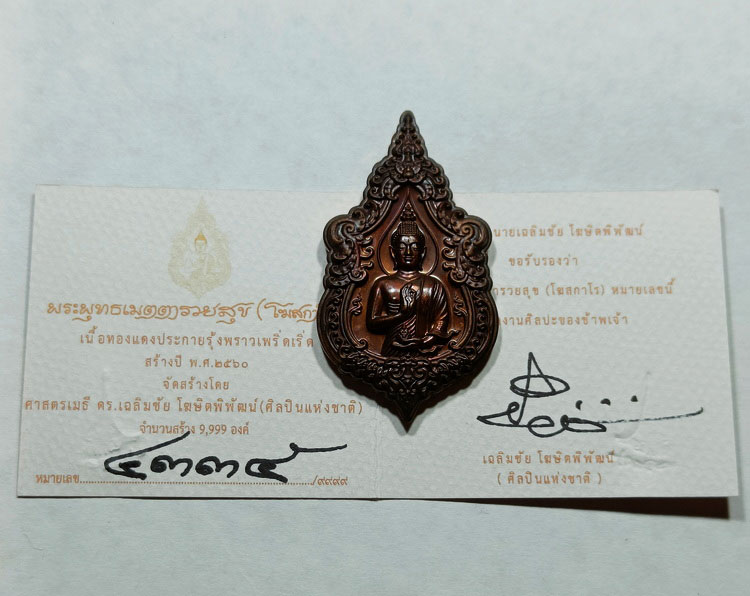 พระพุทธเมตตารวยสุข (โฆสกา
เนื้อทองแดงประกายรุ้งพราวเพริ่ดเริ่ด
สร้างปี พ.ศ.๒๕๖๐
จัดสร้างโดย
ศาสตรเมธี ดร.เฉลิมชัย โฆษิตพิพัฒน์(ศิลปินแห่งชาติ)
จำนวนสร้าง 9,999 องค์
หมายเลข ๔๓๓๕ /๙๙๙๙
นายเฉลิมชัย โฆษิตพิพัฒน์
ขอรับรองว่า
รวยสุข (โฆสกาโร) หมายเลขนี้
งานศิลปะของข้าพเจ้า
เฉลิมชัย โฆษิตพิพัฒน์
( ศิลปินแห่งชาติ )